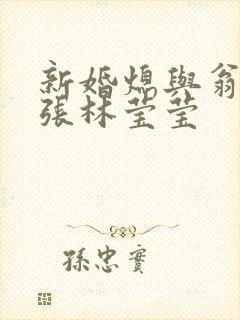 新婚熄與翁
張林莹莹
孫忠實